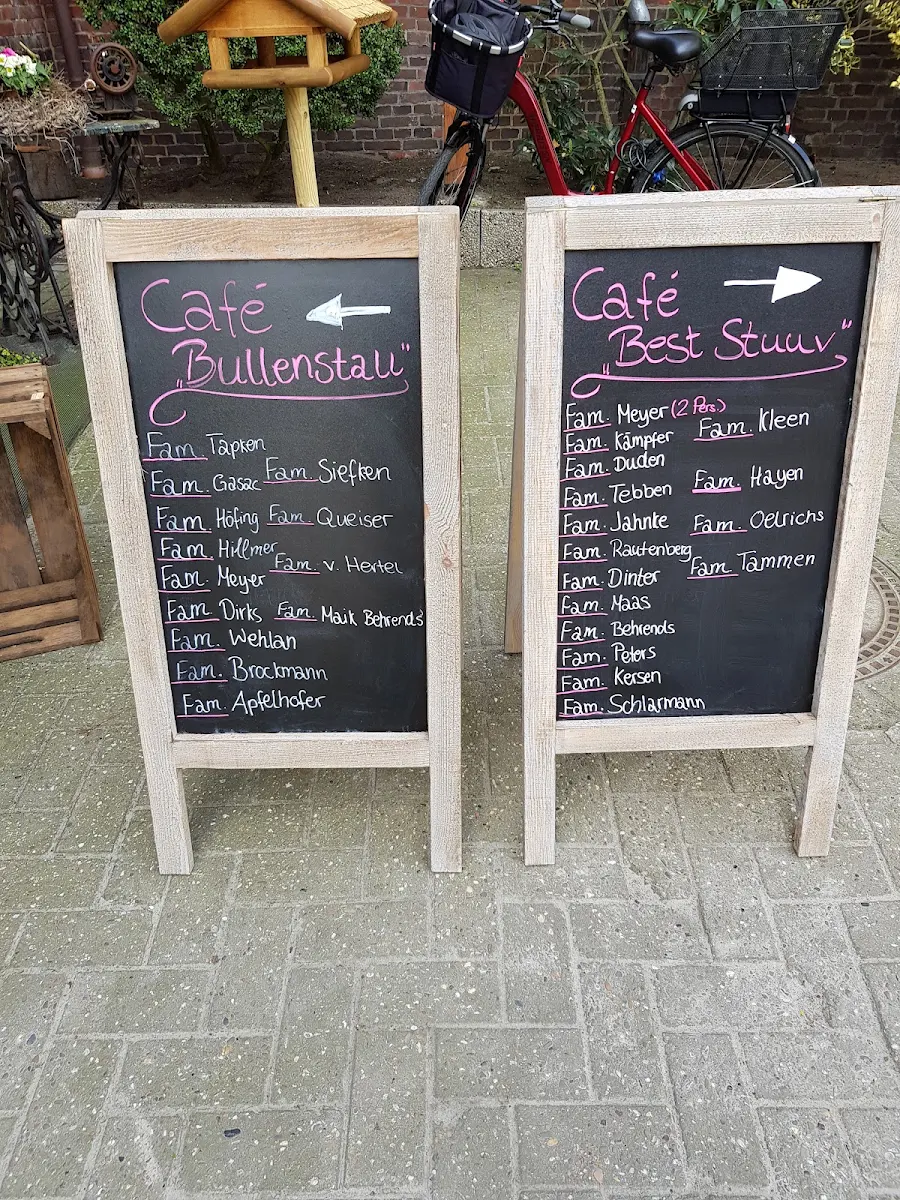 Café
„Bullenstall"
Fam. Tapken
Fam. Gasac Fam. Siefken
Fam. Höfing Fam. Queiser
Fam. Hillmer
Fam. Meyer Fam. v. Hertel
Fam. Dirks Fam. Maik Behrends
Fam. Wehlan
Fam. Brockmann
Fam. Apfelhofer
Café
„Best Stuuv"
Fam. Meyer (2 Pers.)
Fam. Kämpfer Fam. Kleen
Fam. Duden
Fam. Tebben Fam. Hayen
Fam. Jahnke Fam. Oelrichs
Fam. Rautenberg Fam. Tammen
Fam. Dinter
Fam. Maas
Fam. Behrends
Fam. Peters
Fam. Kersen
Fam. Schlarmann